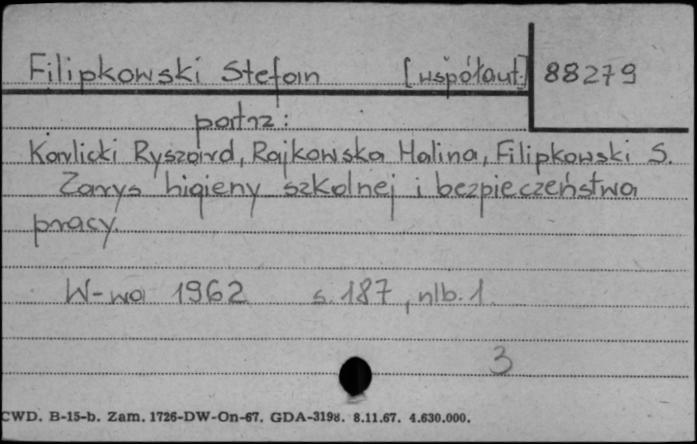 Filipkowski Stefan [współaut.] 88279
patrz:
Karlicki Ryszard, Rajkowska Halina, Filipkowski S.
Zarys higieny szkolnej i bezpieczeństwa
pracy.
W-wa 1962 s. 187, nlb. 1
3
CWD. B-15-b. Zam. 1726-DW-On-67. GDA-3198. 8.11.67. 4.630.000.